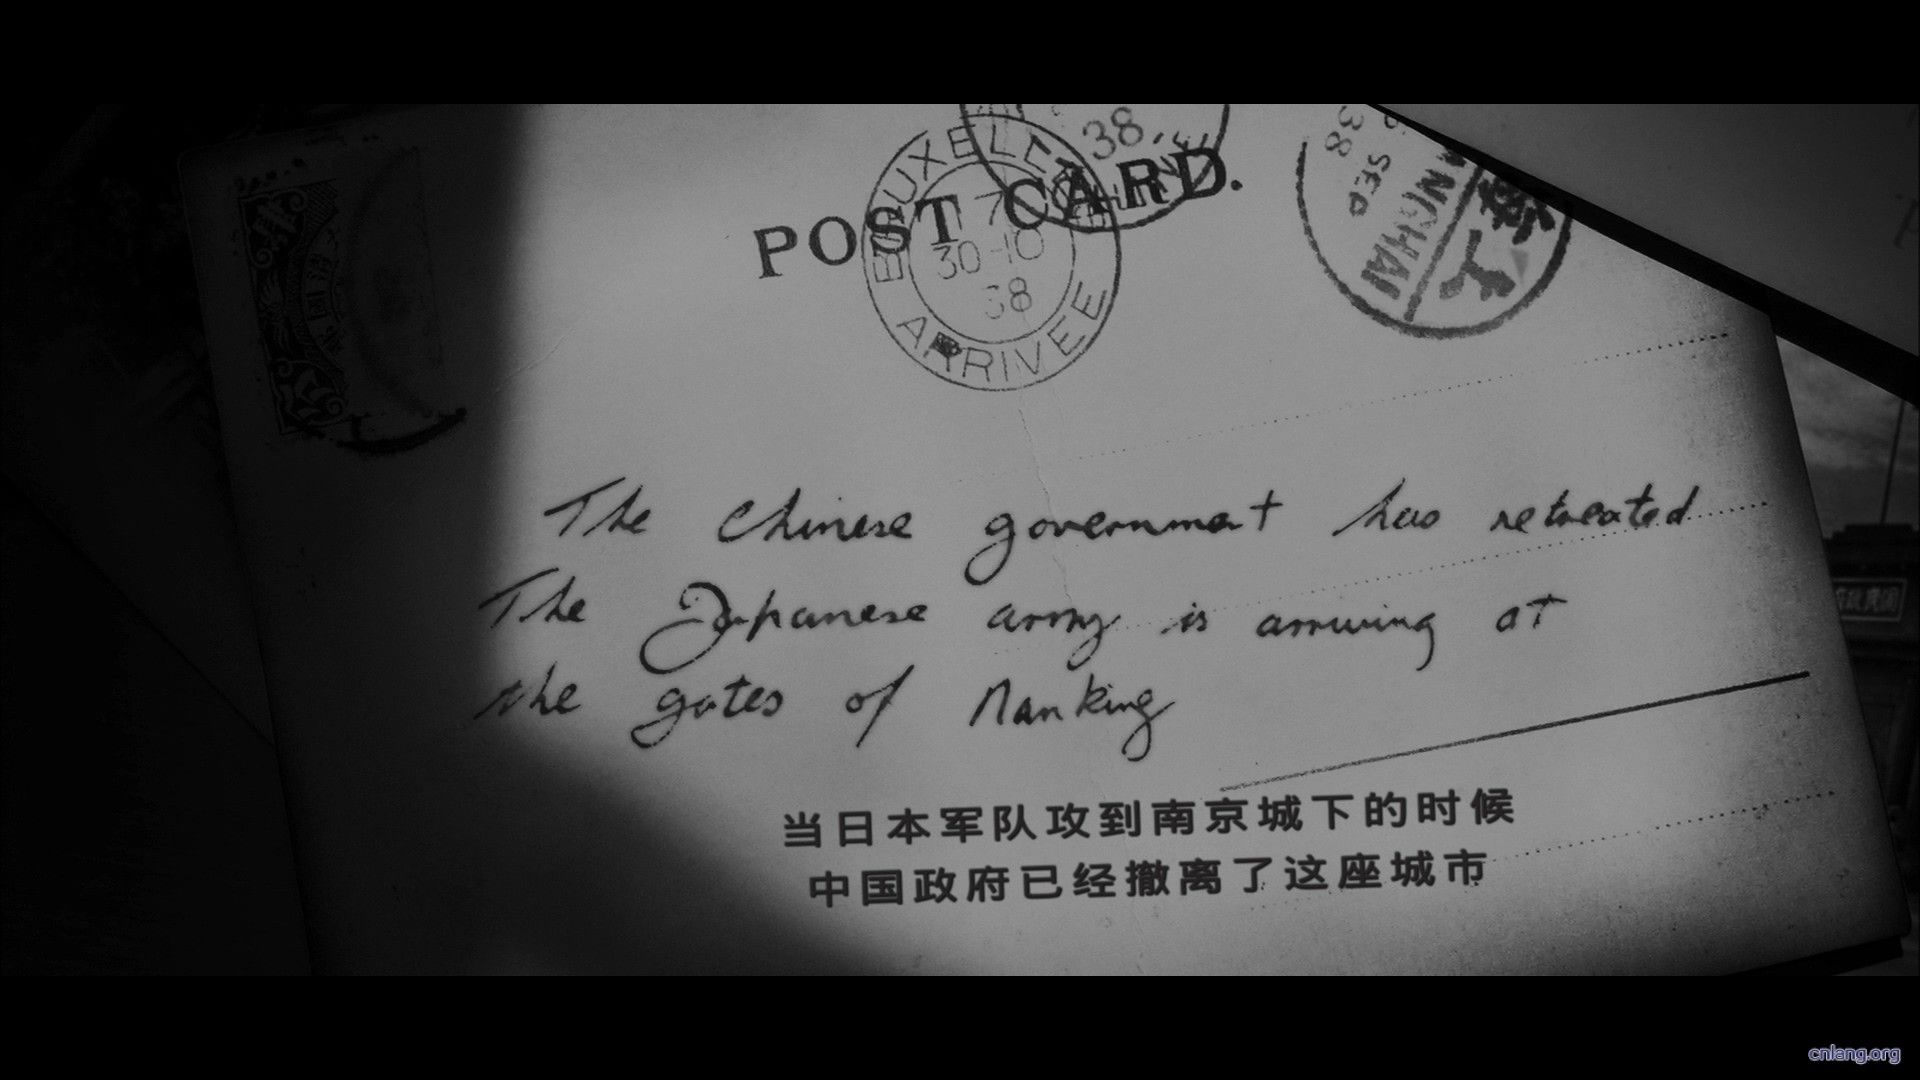 POST CARD.
BRUXELLES
30-10
38
ARRIVEE
38
38
SEP
上海
The Chinese government has retreated
The Japanese army is arriving at
the gates of Nanking
当日本军队攻到南京城下的时候
中国政府已经撤离了这座城市
cnlang.org